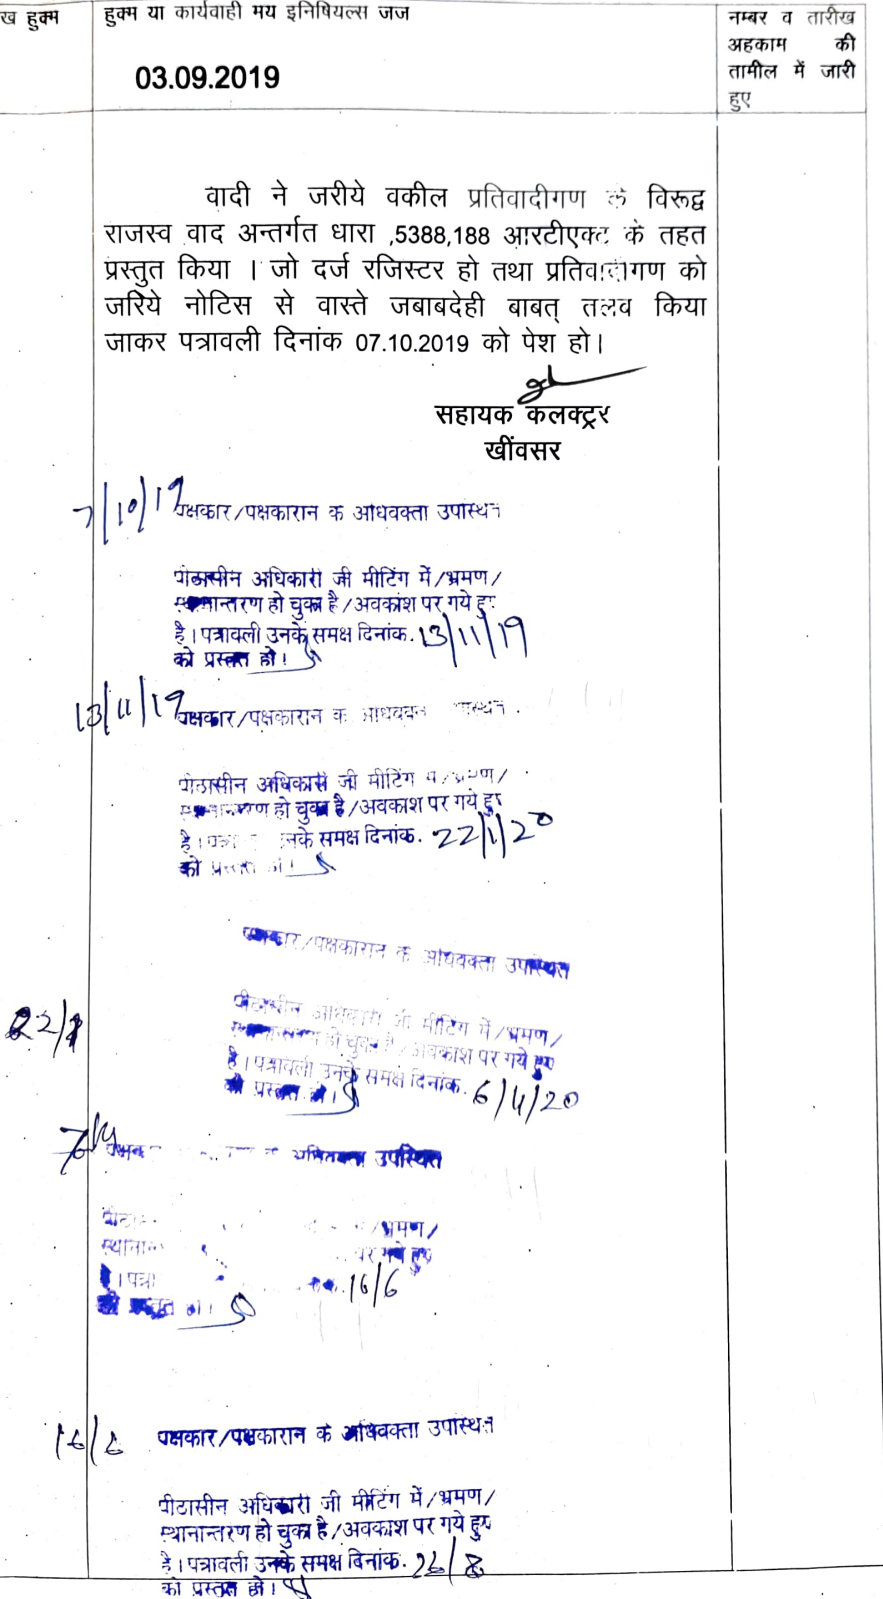 ख हुक्म
हुक्म या कार्यवाही मय इनिषियल्स जज
03.09.2019
नम्बर व तारीख
अहकाम की
तामील में जारी
हुए
वादी ने जरीये वकील प्रतिवादीगण के विरूद्व
राजस्व वाद अन्तर्गत धारा ,5388,188 आरटीएक्ट के तहत
प्रस्तुत किया । जो दर्ज रजिस्टर हो तथा प्रतिवादीगण को
जरिये नोटिस से वास्ते जबाबदेही बाबत् तलब किया
जाकर पत्रावली दिनांक 07.10.2019 को पेश हो।
सहायक कलक्ट्रर
खींवसर
7/10/19
पक्षकार/पक्षकारान के अधिवक्ता उपस्थित
पीठासीन अधिकारी जी मीटिंग में/भ्रमण/
स्थानान्तरण हो चुका है/अवकाश पर गये हुए
है। पत्रावली उनके समक्ष दिनांक. 13/11/19
को प्रस्तुत हो।
13/11/19
पक्षकार/पक्षकारान के
पीठासीन अधिकारी जी मीटिंग
स्थानान्तरण हो चुका है/अवकाश पर गये हुए
है। उनके समक्ष दिनांक. 22/1/20
को
22/1
पक्षकार/पक्षकारान के अधिवक्ता उपस्थित
पीठासीन अधिकारी जी मीटिंग में/भ्रमण/
स्थानान्तरण हो चुका है/अवकाश पर गये हुए
है। पत्रावली उनके समक्ष दिनांक. 6/4/20
को प्रस्तुत हो।
उपस्थित
/भ्रमण/
पर गये हुए
16/6
को प्रस्तुत हो।
16/6
पक्षकार/पक्षकारान के अधिवक्ता उपस्थित
पीठासीन अधिकारी जी मीटिंग में/भ्रमण/
स्थानान्तरण हो चुका है/अवकाश पर गये हुए
है। पत्रावली उनके समक्ष दिनांक. 26/8
को प्रस्तुत हो।